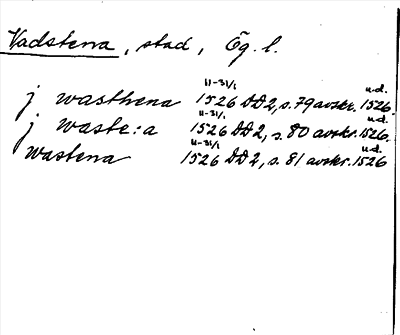 Vadstena, stad, Ög. l.
j wasthena 11-31/1 1526 DD2, s. 79 avskr. u.d. 1526.
j waste:a 11-31/1 1526 DD2, s. 80 avskr. u.d. 1526.
wastena 11-31/1 1526 DD2, s. 81 avskr. u.d. 1526